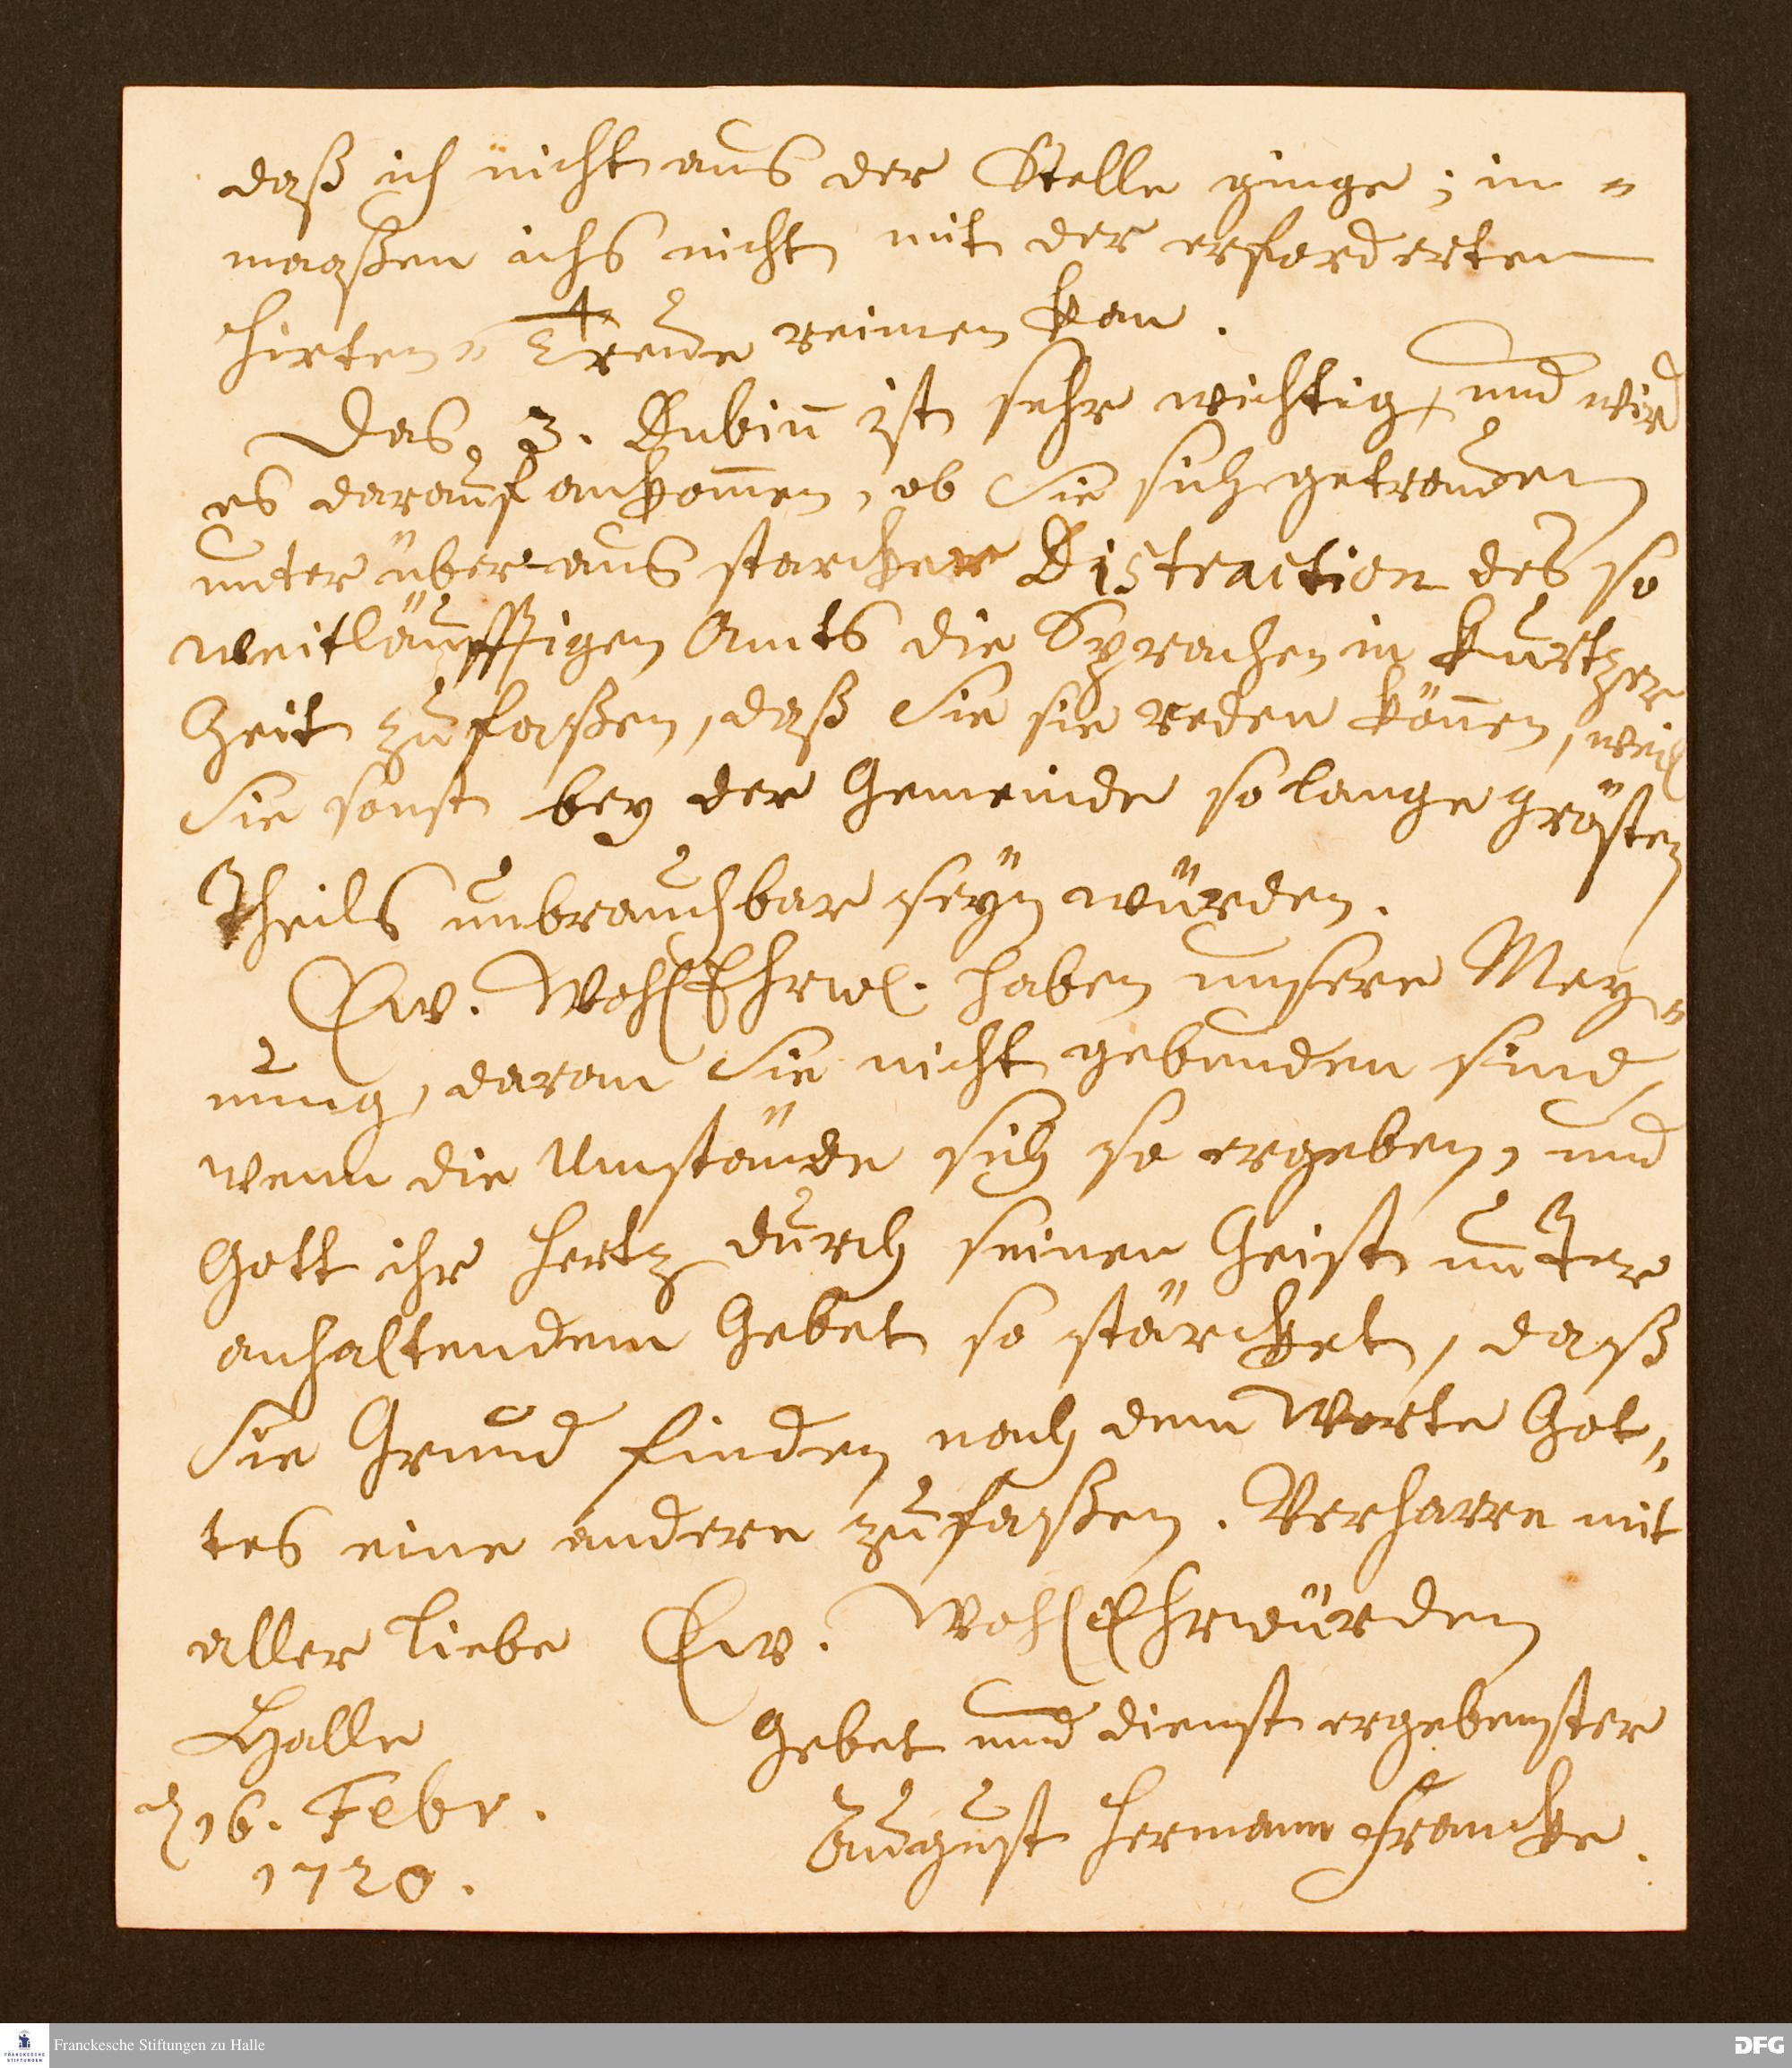 daß ich nicht aus der Stelle ginge; in=
maaßen ichs nicht mit der erforderten
Hirten= Treue reimen kan.
Das 3. Dubiū ist sehr wichtig, und wird
es darauf ankom̄en, ob Sie sich getrauen
unter überaus starcker Distraction des so
weitläufftigen Amts die Sprachen in kurtzer
Zeit zu faßen, daß Sie sie reden kön̄en, weil
Sie sonst bey der Gemeinde so lange grösten
Theils unbrauchbar seyn würden.
Ew. WohlEhrw. haben unsere Mey=
nung, daran Sie nicht gebunden sind,
wenn die Umstände sich so ergeben, und
Gott ihr Hertz durch seinen Geist unter
anhaltendem Gebet so stärcket, daß
Sie Grund finden nach dem Worte Got=
tes eine andere zu faßen. Verharre mit
aller Liebe Ew. WohlEhrwürden
Halle Gebet und dienst ergebenster
d 16. Febr. August Hermann Francke.
1720.
Franckesche Stiftungen zu Halle
DFG